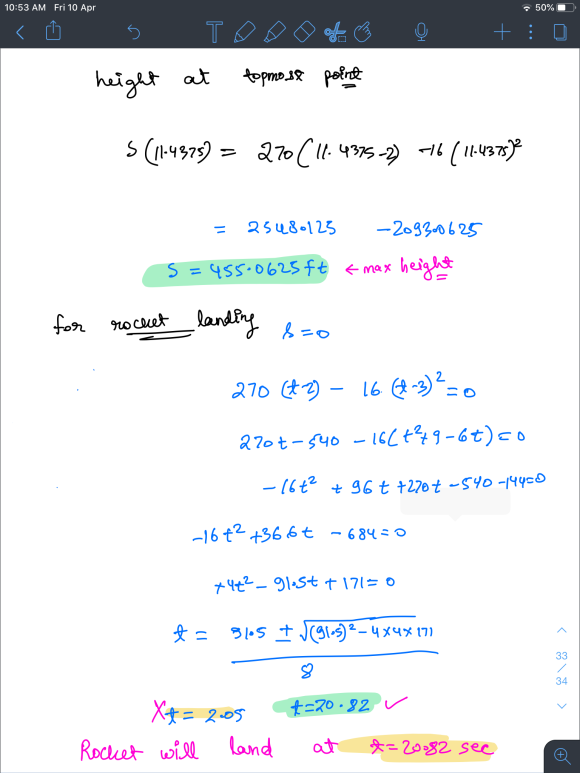 10:53 AM Fri 10 Apr
50%
height at topmost point
S(11.4375) = 270(11.4375-2) -16(11.4375)²
= 2548.0125 -2093.0625
S = 455.0625 ft ← max height
for rocket landing s=0
270 (t-2) - 16 (t-3)² = 0
270t-540 - 16(t²+9-6t)=0
-16t² + 96t +270t -540 -144=0
-16t² +366t - 684=0
+4t² - 91.5t + 171= 0
t = 91.5 ± √(91.5)²-4×4×171
8
33
34
X t= 2.05 t=20.82 ✓
Rocket will land at t=20.82 sec